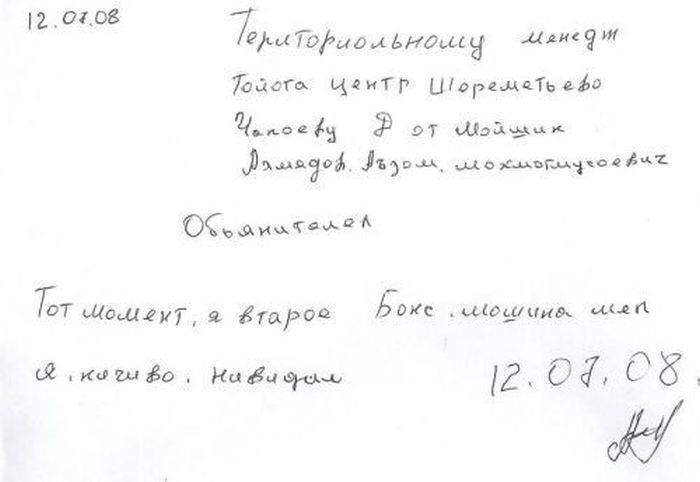 12.07.08
Териториольному менедж
Тойота центр Шореметьево
Чапоеву Д от Мойшик
Ахмедов. Аъзом. мохмотмусоевич
Обьянителел
Тот момент, я второе Бокс. мошина меп
я. ничиво. Нивидал
12.07.08.